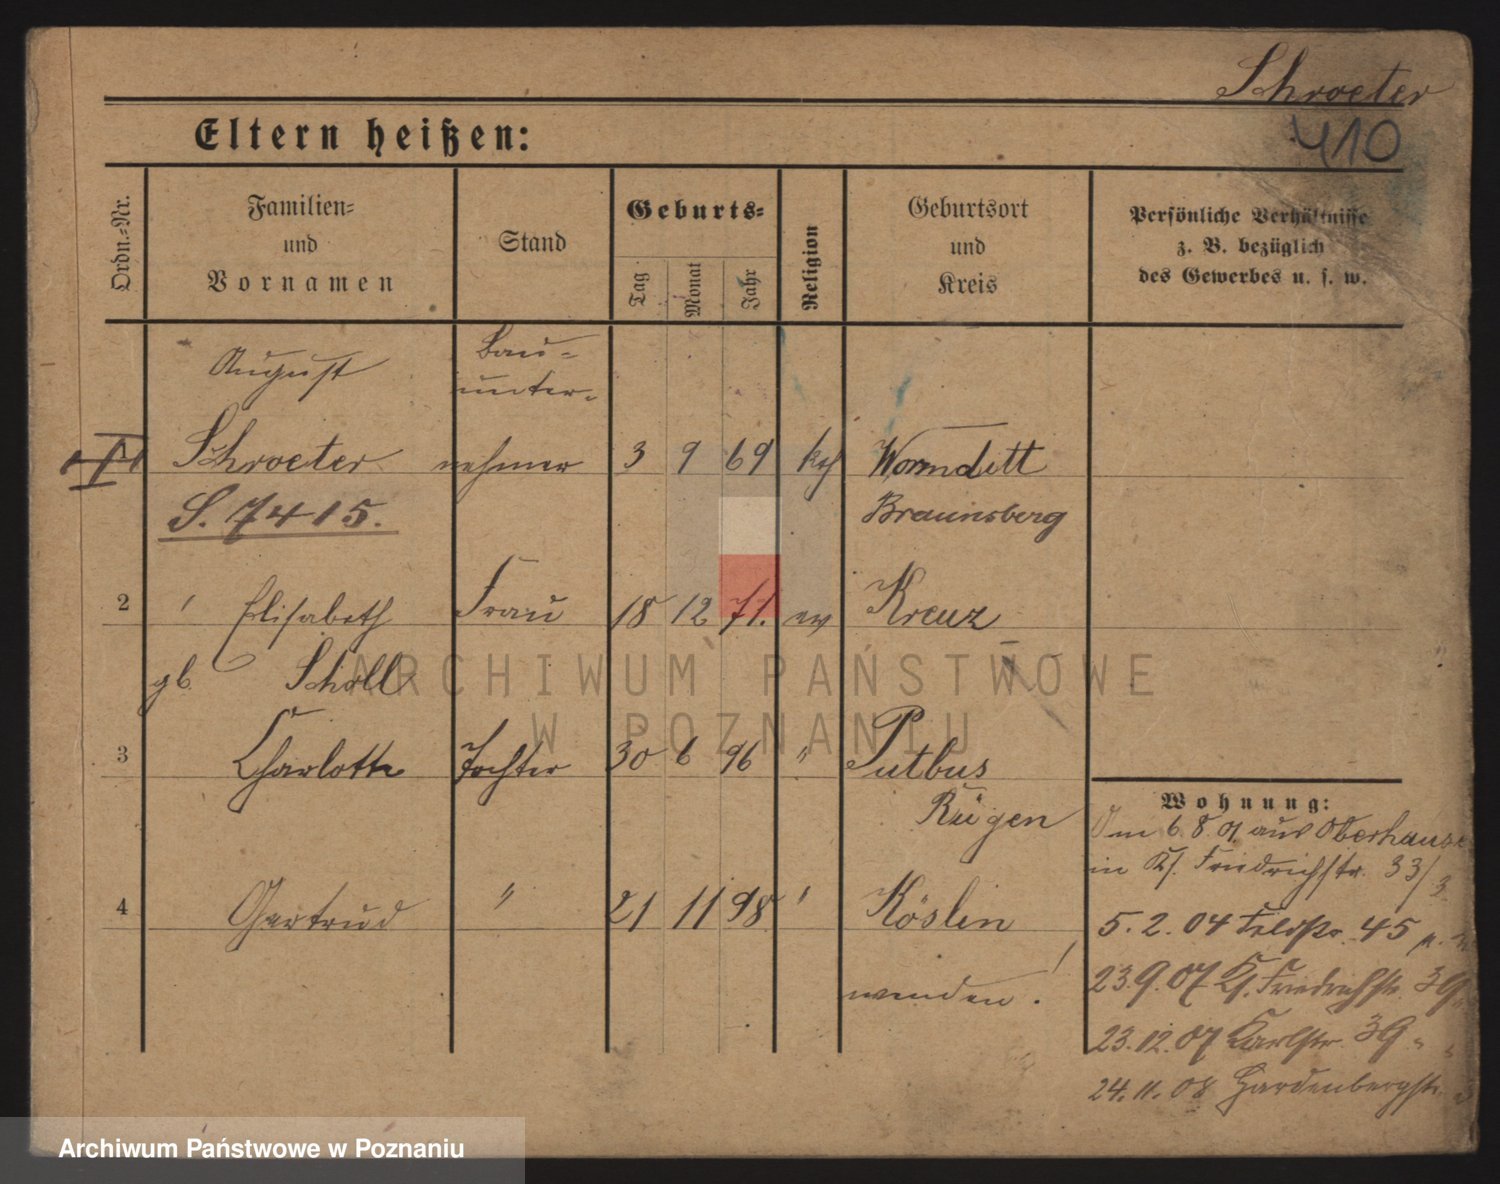 Schroeter
410
Eltern heißen:
Ordn.-Nr.
Familien-
und
Vornamen
Stand
Geburts-
Tag
Monat
Jahr
Religion
Geburtsort
und
Kreis
Persönliche Verhältnisse
z. B. bezüglich
des Gewerbes u. s. w.
August
Bau-
unter-
Schroeter nehmer 3 9 69 kth Wormditt
S. 7415. Braunsberg
2 Elisabeth Frau 18 12 71. ev Kreuz
gb. Scholl
3 Charlotte Tochter 30 6 96 " Putbus
Rügen
4 Gertrud " 21 11 98 " Köslin
wenden!
Wohnung:
6. 8. 01 aus Oberhausen
in Kl. Friedrichstr. 33/3
5. 2. 04 Feldstr. 45
23.9.07 Kl. Friedrichstr. 39
23.12.07 Karlstr. 39 " "
24.11.08 Hardenbergstr.
ARCHIWUM PAŃSTWOWE
W POZNANIU
Archiwum Państwowe w Poznaniu